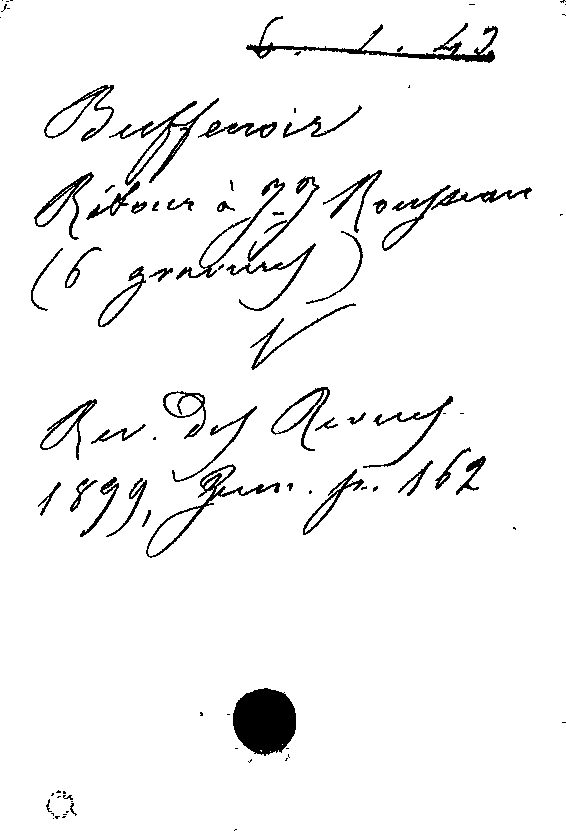 6. 1. 42
Buffenoir
Retour à J-J Rousseau
(6 gravures)
V
Rev. des Revues
1899, p. 162